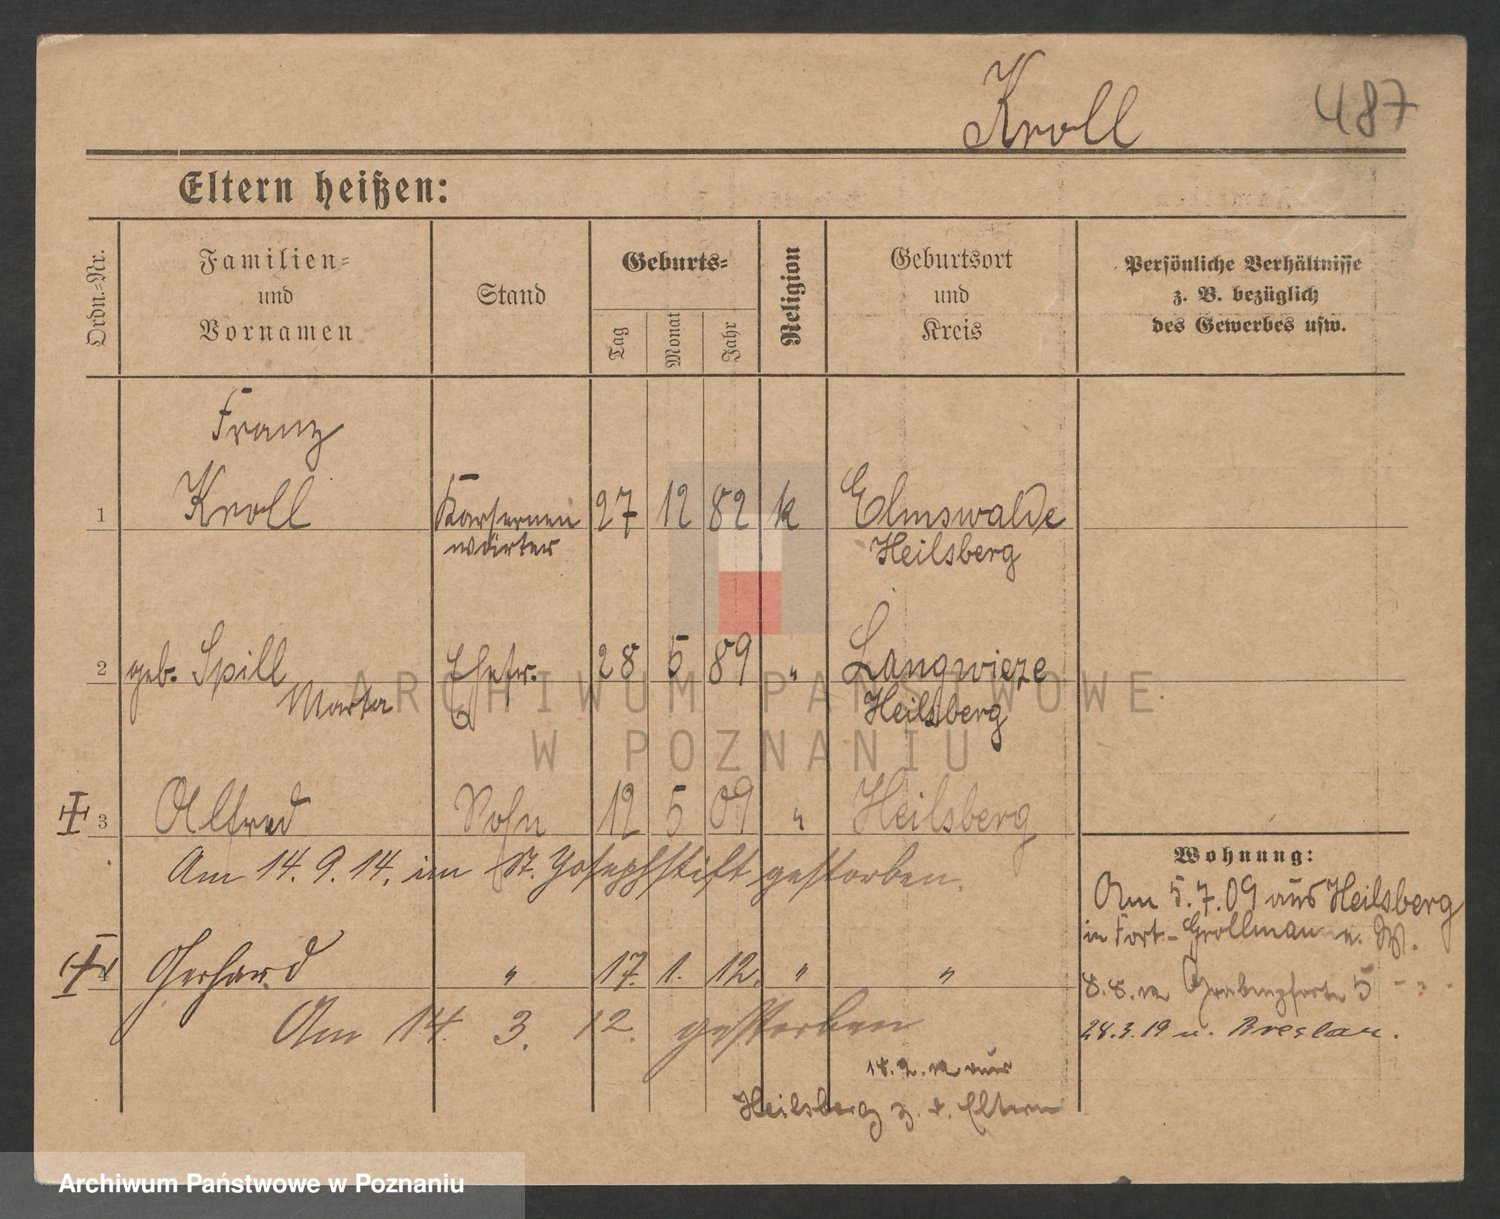 Kroll 487
Eltern heißen:
Ordn.-Nr.
Familien-
und
Vornamen
Stand
Geburts-
Tag
Monat
Jahr
Religion
Geburtsort
und
Kreis
Persönliche Verhältnisse
z. B. bezüglich
des Gewerbes usw.
Franz
1 Kroll Kasernen 27 12 82 k Elmswalde
wärter Heilsberg
2 geb. Spill Ehefr. 28 5 89 " Langwieze
Marta Heilsberg
3 Alfred Sohn 12 5 09 " Heilsberg
Am 14. 9. 14. im St. Josephstift gestorben.
Gerhard " 17. 1. 12. " "
Am 14. 3. 12. gestorben
aus
Heilsberg z. d. Eltern
Wohnung:
Am 5.7.09 aus Heilsberg
in Fort- Grollmann
Grabenpforte 5
28.3.19 n. Breslau.
ARCHIWUM PAŃSTWOWE
W POZNANIU
Archiwum Państwowe w Poznaniu